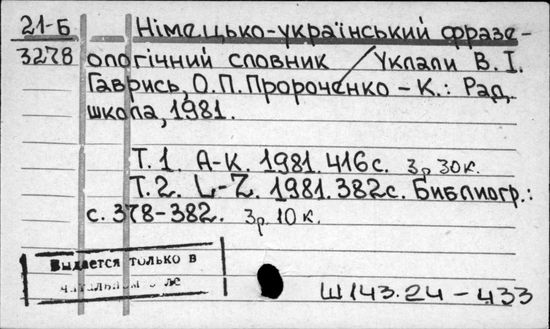 21-Б
3278
Німецько-український фразе-
ологічний словник / Уклали В.І.
Гаврись, О.П. Пророченко – К.: Рад.
школа, 1981.
Т.1. A-K. 1981. 416с. 3р.30к.
Т.2. L-Z. 1981. 382с. Библиогр.:
с. 378-382. 3р.10к.
Выдается только в
Ш143.24-433